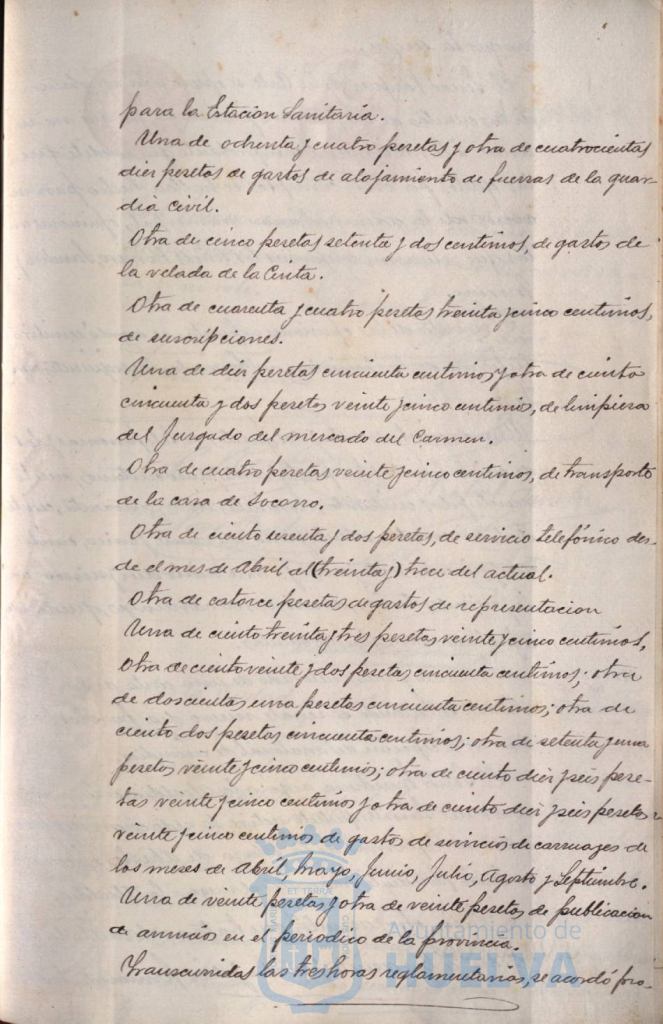 para la Estacion Sanitaria.
Una de ochenta y cuatro pesetas y otra de cuatrocientas
diez pesetas de gastos de alojamiento de fuerzas de la guar-
dia civil.
Otra de cinco pesetas setenta y dos centimos, de gastos de
la velada de la Cinta.
Otra de cuarenta y cuatro pesetas treinta y cinco centimos,
de suscripciones.
Una de diez pesetas cincuenta centimos y otra de ciento
cincuenta y dos pesetas veinte y cinco centimos, de limpieza
del Juzgado del mercado del Carmen.
Otra de cuatro pesetas veinte y cinco centimos, de transporte
de la casa de Socorro.
Otra de ciento sesenta y dos pesetas, de servicio telefónico des-
de el mes de Abril al (treinta y) trece del actual.
Otra de catorce pesetas de gastos de representacion
Una de ciento treinta y tres pesetas veinte y cinco centimos,
otra de ciento veinte y dos pesetas cincuenta centimos; otra
de doscientas una pesetas cincuenta centimos; otra de
ciento dos pesetas cincuenta centimos; otra de setenta y una
pesetas veinte y cinco centimos; otra de ciento diez y seis pese-
tas veinte y cinco centimos y otra de ciento diez y seis pesetas
veinte y cinco centimos de gastos de servicios de carruages de
los meses de Abril, Mayo, Junio, Julio, Agosto y Septiembre.
Una de veinte pesetas y otra de veinte pesetas de publicacion
de anuncios en el periodico de la provincia.
Transcurridas las tres horas reglamentarias, se acordó pro-
Ayuntamiento de
HUELVA